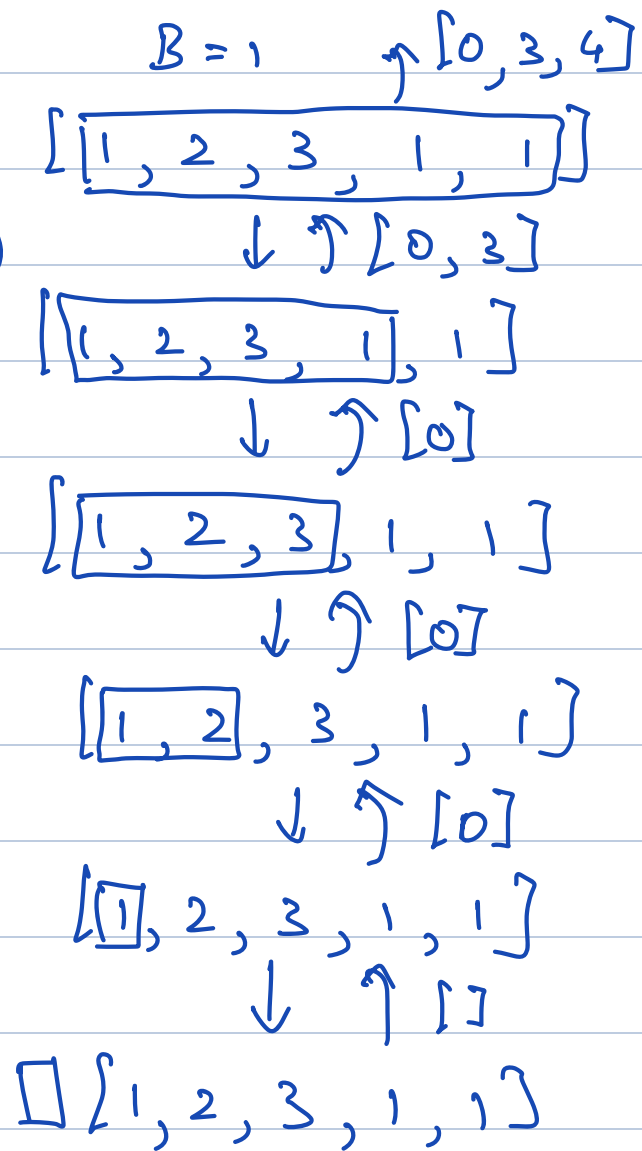 B = 1 ↑ [0, 3, 4]
[1, 2, 3, 1, 1]
↓ ↑ [0, 3]
[1, 2, 3, 1, 1]
↓ ↑ [0]
[1, 2, 3, 1, 1]
↓ ↑ [0]
[1, 2, 3, 1, 1]
↓ ↑ [0]
[1, 2, 3, 1, 1]
↓ ↑ []
[1, 2, 3, 1, 1]